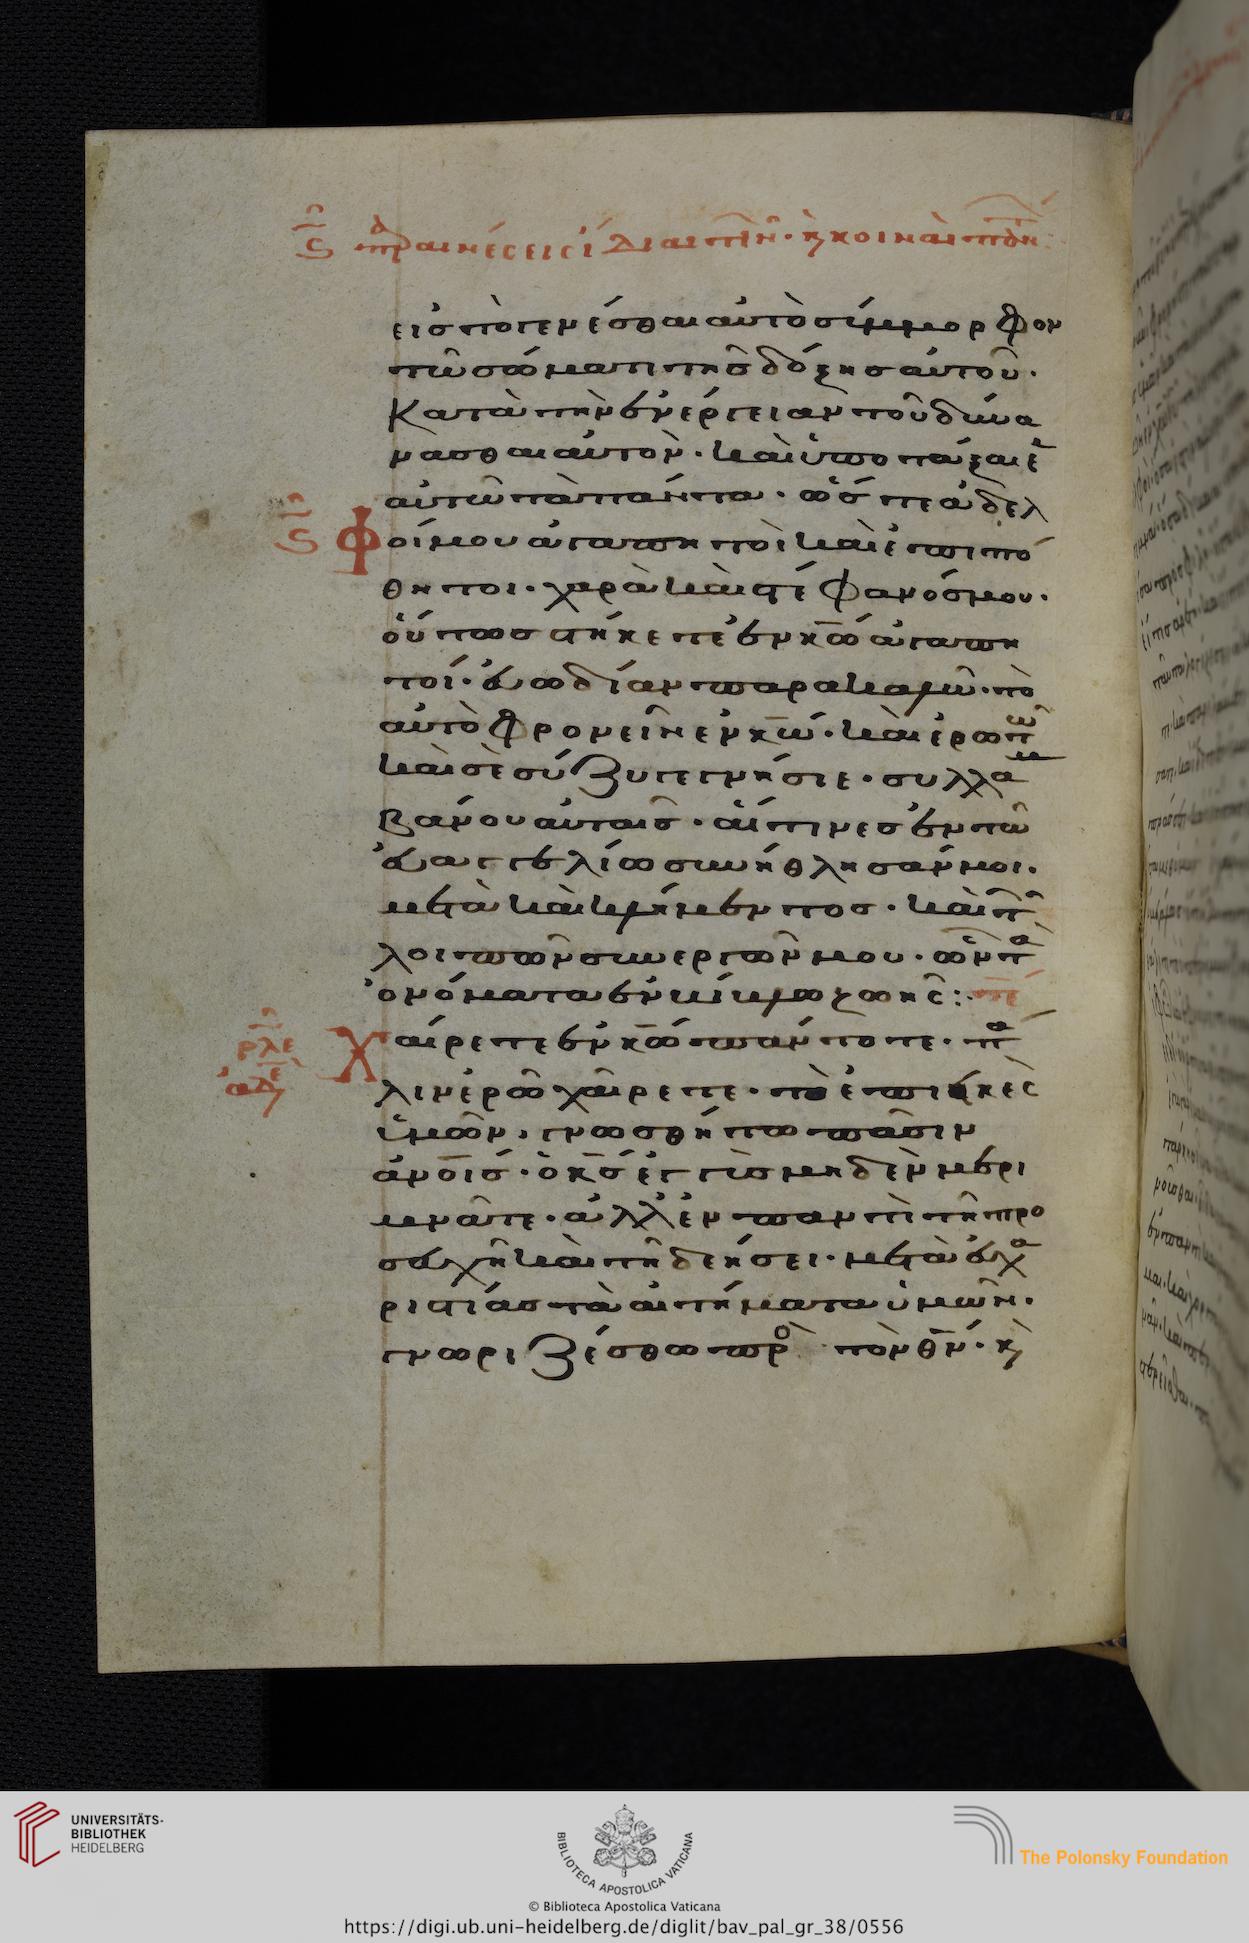 ϛ παραινέσεις ἰδίαι τινῶν· κ κοιναὶ πάντων:
εἰς τὸ γενέσθαι αὐτὸ σύμμορφον
τῶ σώματι τῆς δόξης αὐτοῦ·
Κατὰ τὴν ἐνέργειαν τοῦ δύνα
νασθαι αὐτὸν· καὶ ὑποτάξαι ἑ
αὐτῶ τὰ πάντα· ὥστε ἀδελ
ϛ Φοί μου ἀγαπητοὶ καὶ ἐπιπό
θητοι· χαρὰ καὶ στέφανός μου·
οὕτως στήκετε ἐν κω ἀγαπη
τοί· ἐυωδίαν παρακαλῶ· τὸ
αὐτὸ φρονεῖν ἐν κω· καὶ ἐρωτῶ
καὶ σὲ σύζυγε γνήσιε· συλλαμ
βάνου αὐταῖς· αἵτινες ἐν τῶ
ἐυαγγελίω συνήθλησάν μοι·
μετὰ καὶ κλήμεντος· καὶ τῶν
λοιπῶν συνεργῶν μου· ὧν τὰ
ὀνόματα ἐν κικλω ζωῆς: τε
ρλε Χαίρετε ἐν κω πάντοτε· πά
λιν ἐρῶ χαίρετε· τὸ ἐπιεικὲς
ὑμῶν, γνωσθήτω πᾶσιν
ἀνοις· ὁ κς ἐγγὺς μηδὲν μερι
μνᾶτε· ἀλλ' ἐν παντὶ τῆ προ
σευχῆ καὶ τῆ δεήσει· μετὰ ἐυχα
ριστίας τὰ αἰτήματα ὑμῶν·
γνωριζέσθω πρὸς τὸν θν· κ
UNIVERSITÄTS-
BIBLIOTHEK
HEIDELBERG
BIBLIOTECA APOSTOLICA VATICANA
The Polonsky Foundation
© Biblioteca Apostolica Vaticana
https://digi.ub.uni-heidelberg.de/diglit/bav_pal_gr_38/0556